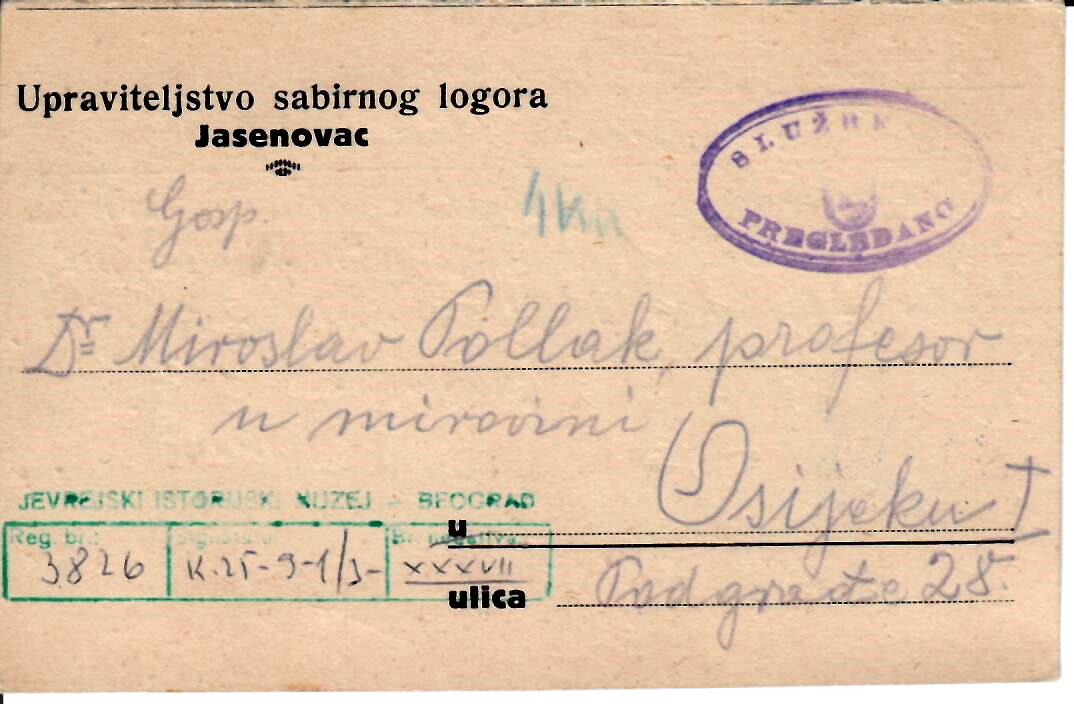 Upraviteljstvo sabirnog logora
Jasenovac
SLUŽBE
PREGLEDANO
Gosp.
Dr Miroslav Pollak, profesor
u mirovini
JEVREJSKI ISTORIJSKI MUZEJ - BEOGRAD
Reg. br.: Signatura: Br. negativa
3826 K.25-9-1/3- XXXVII
u Osijeku I
ulica Podgrađe 28.